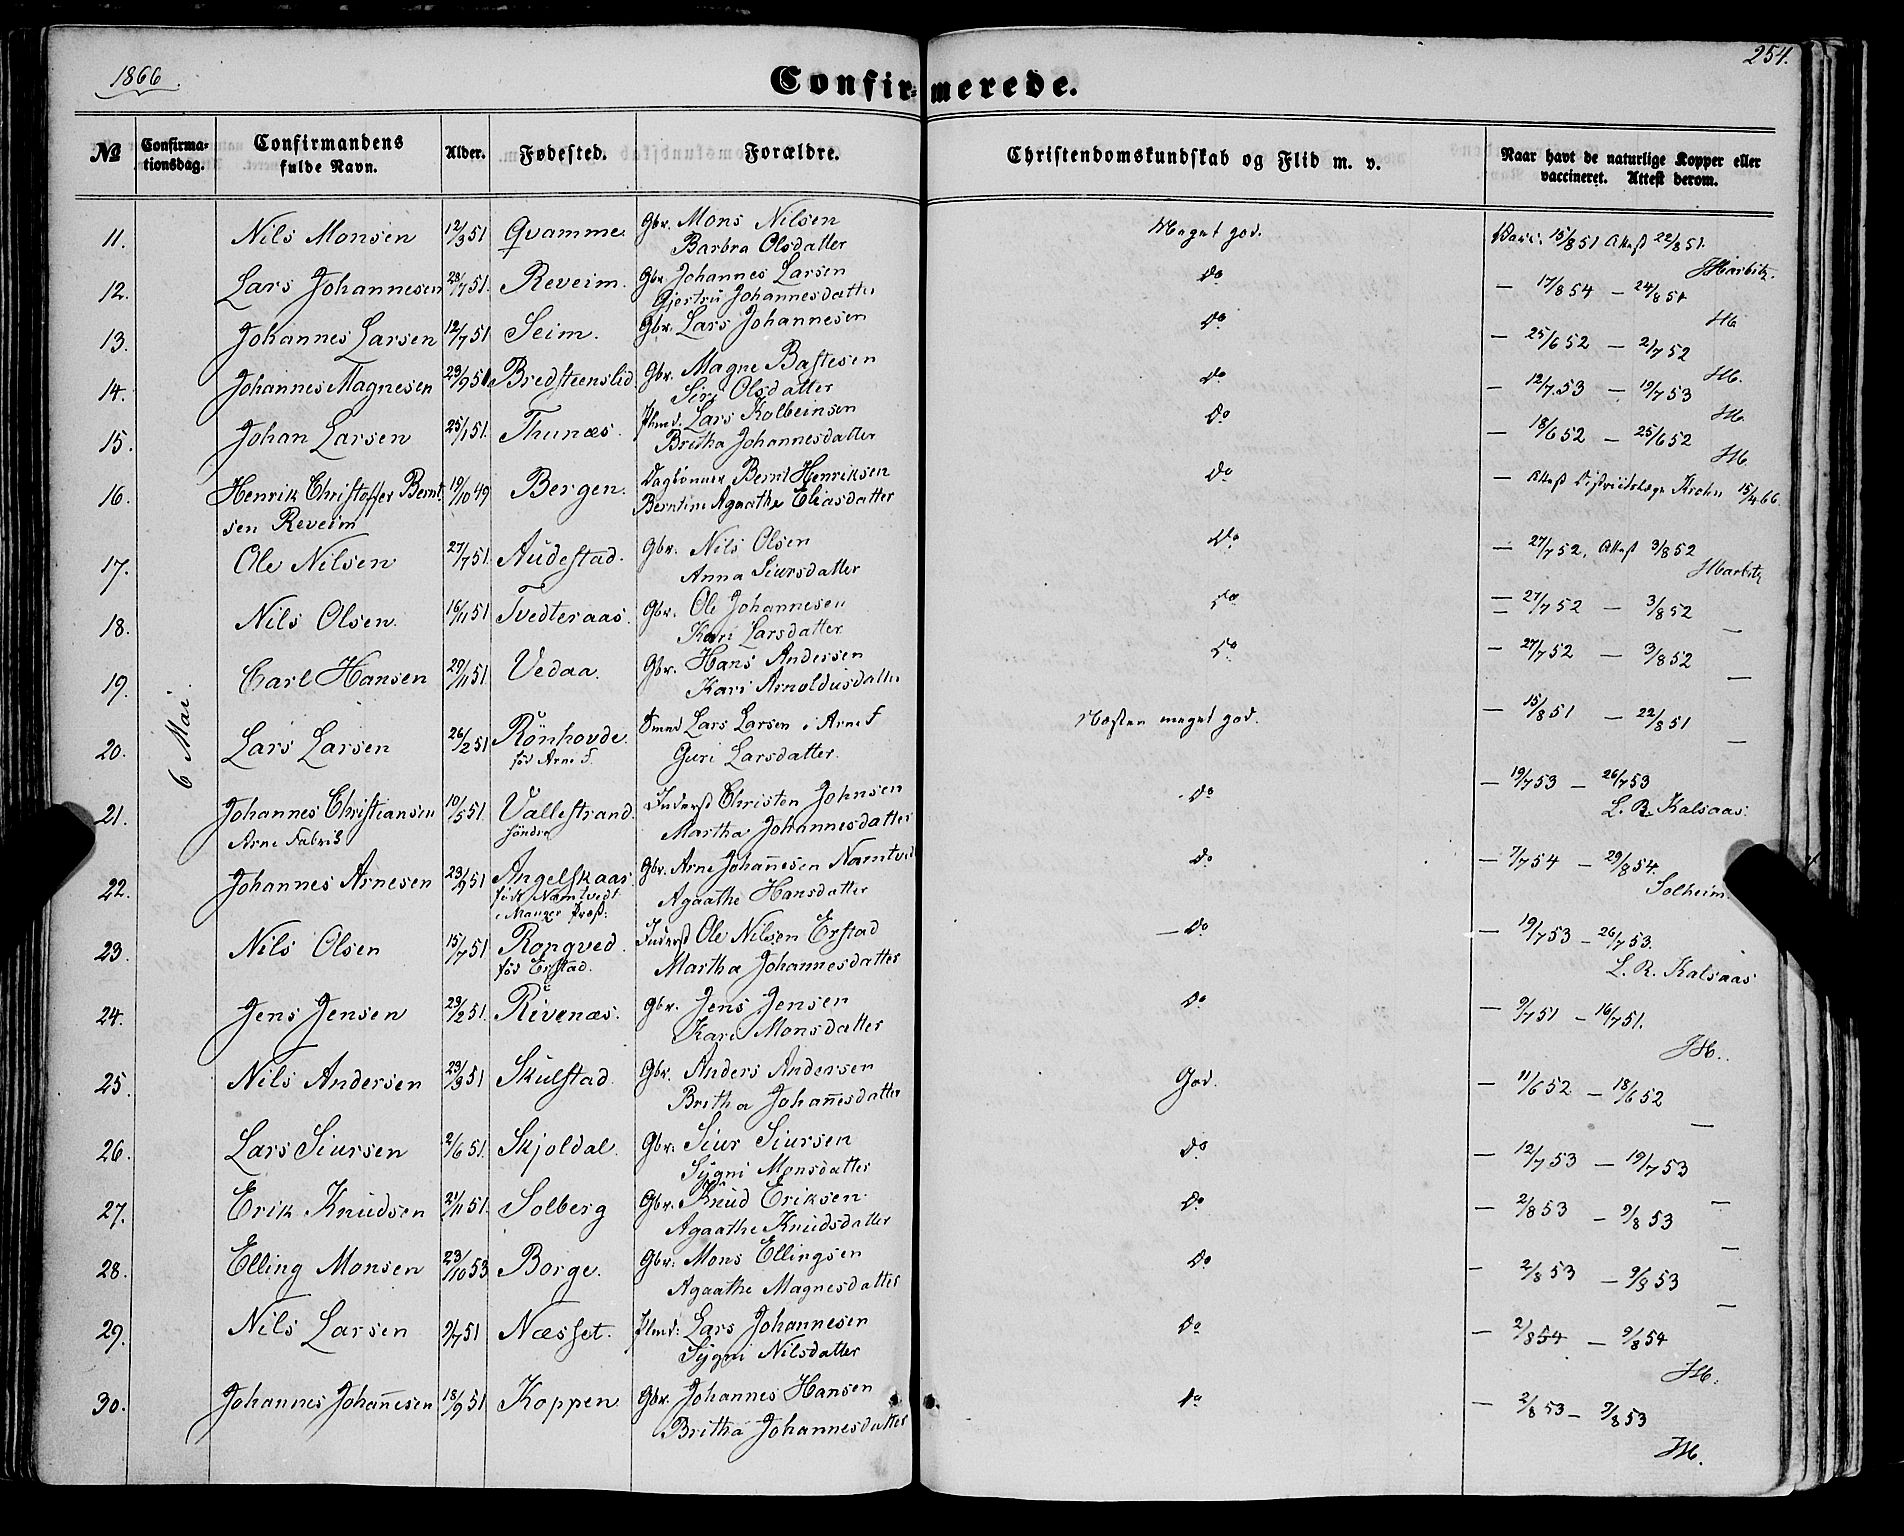 1866.
254.
Confirmerede.
№ Confirmationsdag. Confirmandens fulde Navn. Alder. Fødested. Forældre. Christendomskundskab og Flid m. v. Naar havt de naturlige Kopper eller vaccineret. Attest derom.
6 Mai.
11. Nils Monsen 12/3 51 Qvamme. Gbr. Mons Nilsen Meget god. Vacc. 15/8 51 Attest 22/8 51.
Barbra Olsdatter JHarbitz.
12. Lars Johannesen 28/7 51. Reveim. Gbr. Johannes Larsen Do — 17/8 54 — 24/8 54
Gjertru Johannesdatter H
13. Johannes Larsen 12/7 51 Seim. Gbr. Lars Johannesen Do — 25/6 52 — 2/7 52
H.
14. Johannes Magnesen 23/9 51 Bredsteenslid Gbr. Magne Bastesen Do — 12/7 53 — 19/7 53
Siri Olsdatter H.
15. Johan Larsen 25/1 51. Thunæs. Plmd: Lars Kolbeinsen Do — 18/6 52 — 25/6 52
Britha Johannesdatter H.
16. Henrik Christoffer Bernt- 19/10 49 Bergen. Bernt Henriksen Do — Attest Districtslæge Krohn 15/4 66.
sen Reveim Berntine Agaathe Eliasdatter
17. Ole Nilsen 27/7 51. Audestad. Gbr. Nils Olsen Do — 27/7 52, Attest 3/8 52
Anna Siursdatter JHarbitz
18. Nils Olsen. 16/11 51 Tvedteraas. Gbr. Ole Johannesen Do — 27/7 52 — 3/8 52
Kari Larsdatter —
19. Carl Hansen 29/11 51 Vedaa. Gbr. Hans Andersen Do — 27/7 52 — 3/8 52
Kari Arnoldusdatter —
20. Lars Larsen 26/2 51 Rönhovde. Smed Lars Larsen i Arne F Næsten meget god. — 15/8 51 — 22/8 51
fød Arne F. Guri Larsdatter. —
21. Johannes Christiansen 10/5 51. Vallestrand. Inderst Christen Johnsen Do — 19/7 53 — 26/7 53
Arne Fabrik söndre Martha Johannesdatter L. R. Kalsaas.
22. Johannes Arnesen 23/9 51 Angelskaar. Gbr. Arne Johannesen Namtved Do — 7/7 54 — 29/8 54.
født Namtvedt Agaathe Hansdatter Solheim
i Manger Præst:
23. Nils Olsen 15/7 51 Rongved. Inderst Ole Nilsen Erstad — Do — 19/7 53 — 26/7 53.
fød Erstad. Martha Johannesdatter L. R. Kalsaas
24. Jens Jensen 23/2 51. Rivenæs. Gbr. Jens Jensen Do — 9/7 51 — 16/7 51.
Kari Monsdatter JH.
25. Nils Andersen 23/3 51 Skulstad. Gbr. Anders Andersen God. — 11/6 52 — 18/6 52
Britha Johannesdatter —
26. Lars Siursen 2/6 51. Skjoldal. Gbr. Siur Siursen Do — 12/7 53 — 19/7 53
Sygni Monsdatter —
27. Erik Knudsen 21/11 51. Solberg Gbr. Knud Eriksen. Do — 2/8 53 — 9/8 53
Agaathe Knudsdatter —
28. Elling Monsen 23/10 53 Borge. Gbr. Mons Ellingsen Do — 2/8 53 — 9/8 53
Agaathe Magnesdatter —
29. Nils Larsen 9/7 51 Næsset. Plmd: Lars Johannesen Do — 2/8 54 — 9/8 54
Sygni Nilsdatter H.
30. Johannes Johannesen 18/9 51 Koppen Gbr. Johannes Hansen Do — 2/8 53 — 9/8 53
Britha Johannesdatter H.